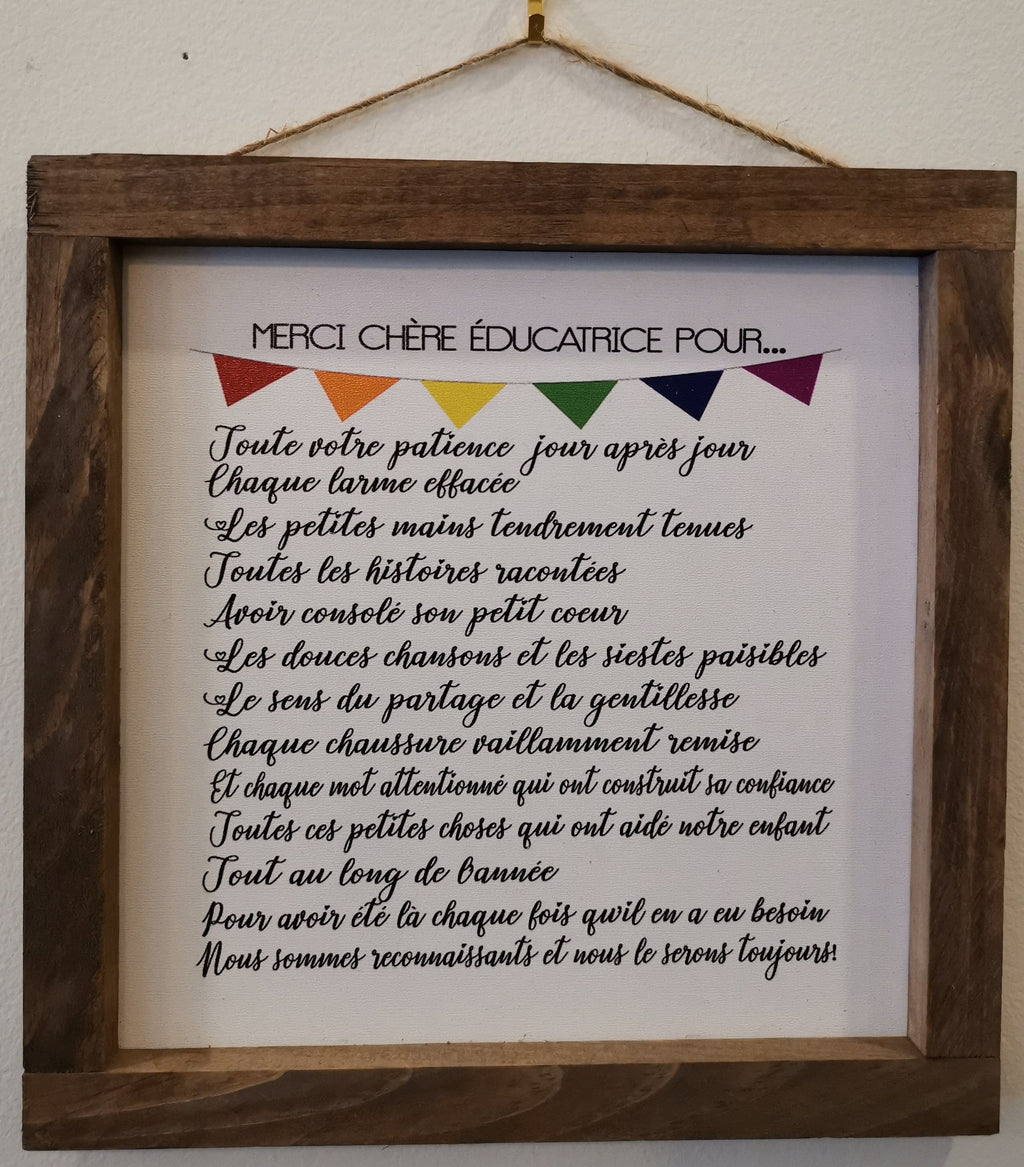 MERCI CHÈRE ÉDUCATRICE POUR...
Toute votre patience jour après jour
Chaque larme effacée
Les petites mains tendrement tenues
Toutes les histoires racontées
Avoir consolé son petit coeur
Les douces chansons et les siestes paisibles
Le sens du partage et la gentillesse
Chaque chaussure vaillamment remise
Et chaque mot attentionné qui ont construit sa confiance
Toutes ces petites choses qui ont aidé notre enfant
Tout au long de l'année
Pour avoir été là chaque fois qu'il en a eu besoin
Nous sommes reconnaissants et nous le serons toujours!